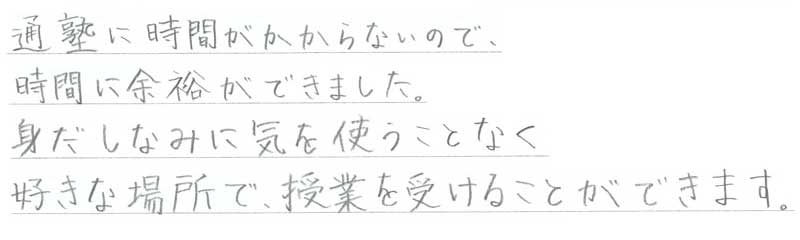 通塾に時間がかからないので、
時間に余裕ができました。
身だしなみに気を使うことなく
好きな場所で、授業を受けることができます。